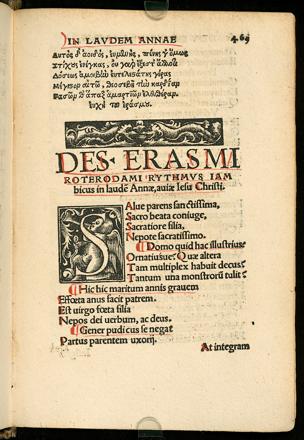 IN LAVDEM ANNAE 469
DES. ERASMI
ROTERODAMI RYTHMVS IAM
bicus in laudē Annæ, auiæ Iesu Christi.
SAlue parens sanctissima,
Sacro beata coniuge,
Sacratiore filia,
Nepote sacratissimo.
¶ Domo quid hac illustrius?
Ornatiusue? Quæ altera
Tam multiplex habuit decus?
Tantum una monstrorū tulit?
¶ Hic hic maritum annis grauem
Effœta anus facit patrem.
Est uirgo fœta filia
Nepos dei uerbum, ac deus.
¶ Gener pudicus se negat
Partus parentem uxorij.
At integram